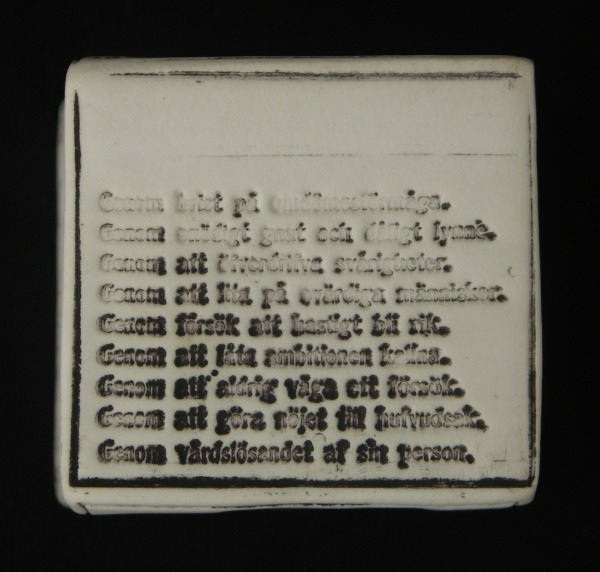 Genom brist på omdömesförmåga.
Genom onödigt gnat och dåligt lynne.
Genom att öfverdrifva svårigheter.
Genom att lita på ovärdiga människor.
Genom försök att hastigt bli rik.
Genom att låta ambitionen kallna.
Genom att aldrig våga ett försök.
Genom att göra nöjet till hufvudsak.
Genom vårdslösandet af sin person.